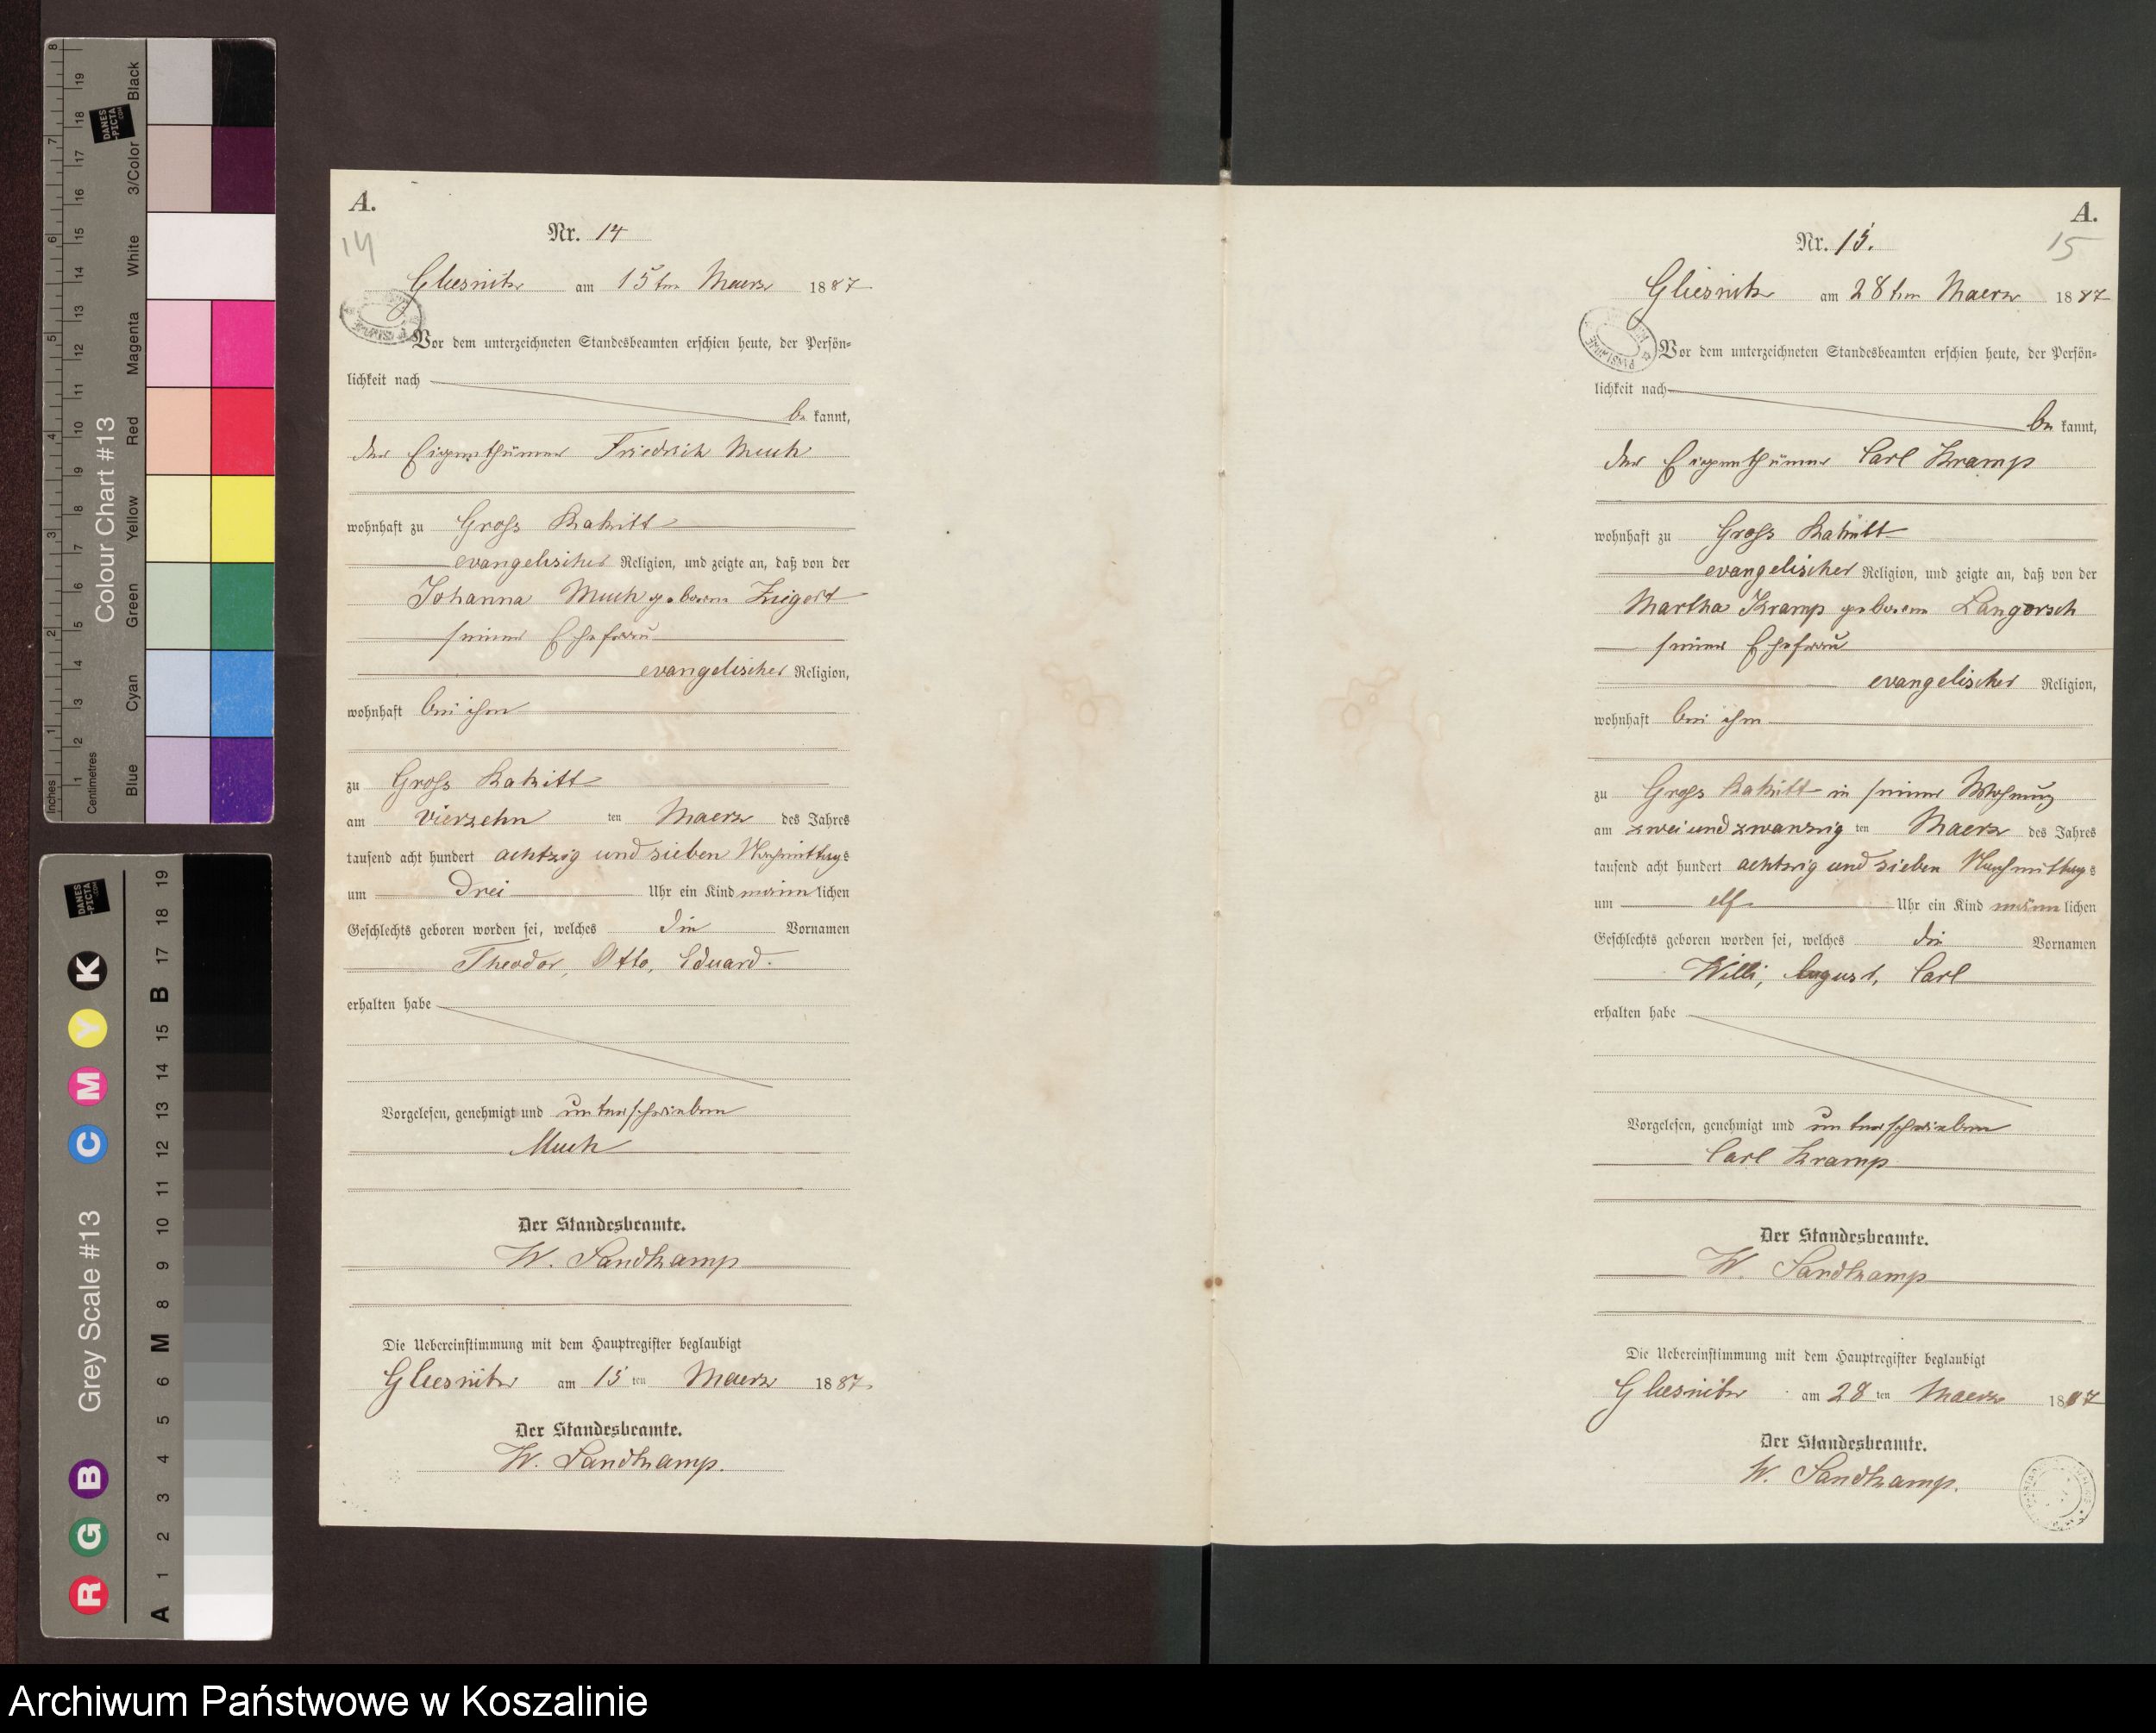 A.
14
Nr. 14
Gliesnitz am 15ten Maerz 1887
Vor dem unterzeichneten Standesbeamten erschien heute, der Persön-
lichkeit nach
be kannt,
der Eigenthümer Friedrich Much
wohnhaft zu Gross Rakitt
evangelischer Religion, und zeigte an, daß von der
Johanna Much geboren
seiner Ehefrau
evangelischer Religion,
wohnhaft bei ihm
zu Gross Rakitt
am vierzehn ten Maerz des Jahres
tausend acht hundert achtzig und sieben Nachmittags
um Drei Uhr ein Kind männ lichen
Geschlechts geboren worden sei, welches die Vornamen
Theodor, Otto, Eduard.
erhalten habe
Vorgelesen, genehmigt und unterschrieben
Much
Der Standesbeamte.
W. Sandkamp
Die Uebereinstimmung mit dem Hauptregister beglaubigt
Gliesnitz am 15 ten Maerz 1887.
Der Standesbeamte.
W. Sandkamp.
A.
15
Nr. 15.
Gliesnitz am 28ten Maerz 1887
Vor dem unterzeichneten Standesbeamten erschien heute, der Persön-
lichkeit nach
be kannt,
der Eigenthümer Carl Kramp
wohnhaft zu Gross Rakitt
evangelischer Religion, und zeigte an, daß von der
Martha Kramp geboren Langosch
seiner Ehefrau
evangelischer Religion,
wohnhaft bei ihm
zu Gross Rakitt in seiner Wohnung
am zwei und zwanzig ten Maerz des Jahres
tausend acht hundert achtzig und sieben Nachmittags
um elf Uhr ein Kind männ lichen
Geschlechts geboren worden sei, welches die Vornamen
Willi, August, Carl
erhalten habe
Vorgelesen, genehmigt und unterschrieben
Carl Kramp
Der Standesbeamte.
W. Sandkamp
Die Uebereinstimmung mit dem Hauptregister beglaubigt
Gliesnitz am 28 ten Maerz 1887
Der Standesbeamte.
W. Sandkamp.
Colour Chart #13
Inches
Centimetres
Blue Cyan Green Yellow Red Magenta White 3/Color Black
DANES-PICTA.COM
Grey Scale #13
R G B C M Y K
A 1 2 3 4 5 6 M 8 9 10 11 12 13 14 15 B 17 18 19
Archiwum Państwowe w Koszalinie